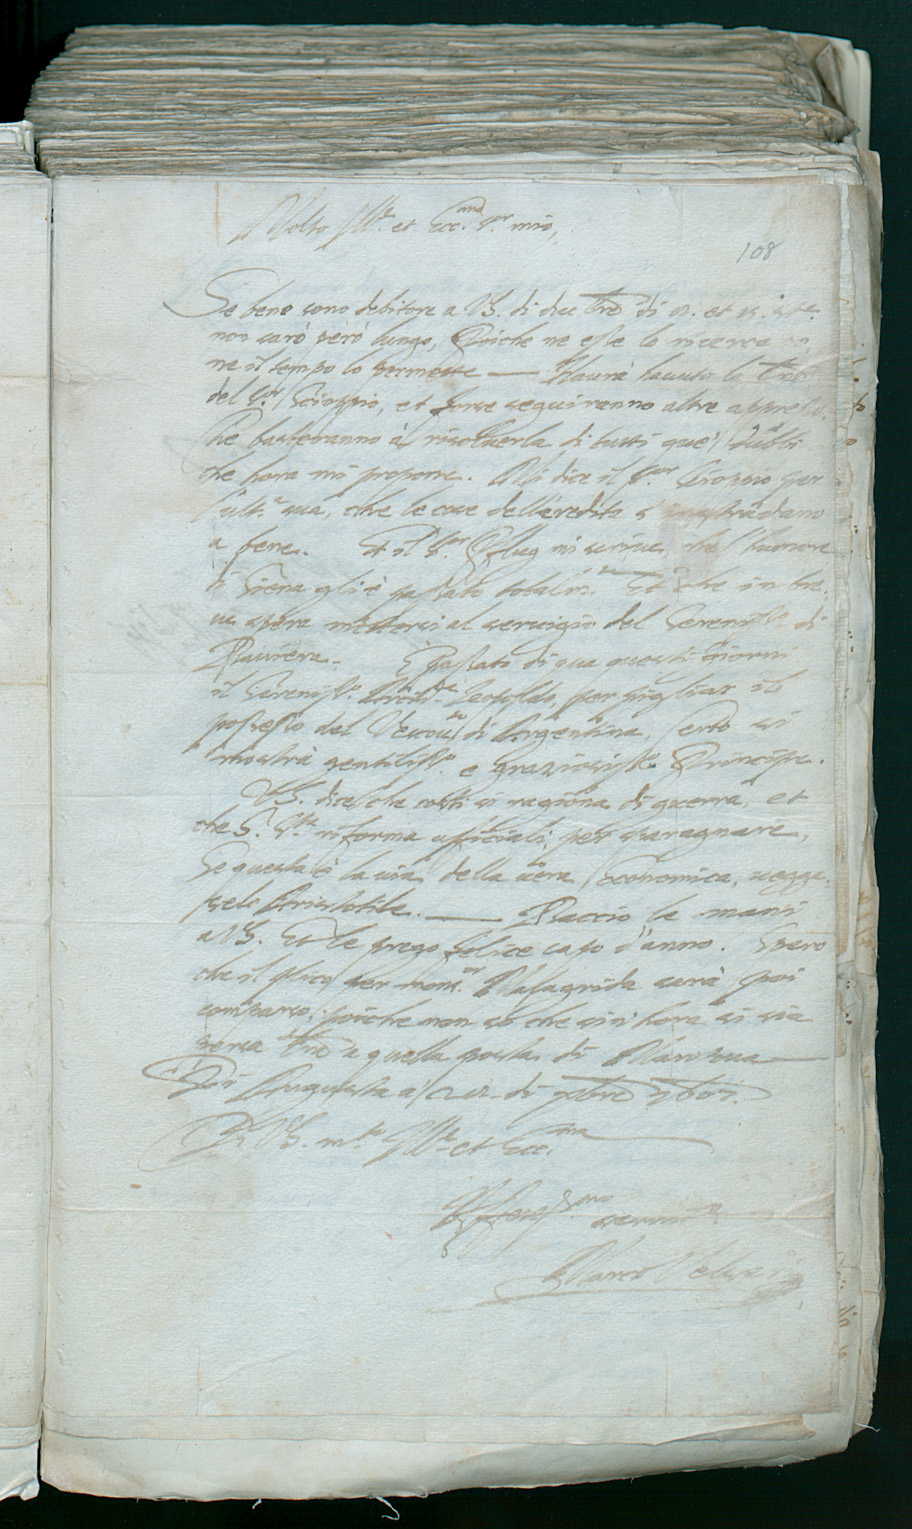 Molto Ill.re et Ecc.mo S.or mio,
108
Se bene sono debitore a VS. di due lre di et
non sarò però lungo, Poiche ne esse lo ricerca
ne il tempo lo permette — Haurà hauuto le lre
del S.or Scioppio, et forse seguiranno altre appresso
che basteranno à risoluerla di tutti que' dubbi
che hora mi propone. Mi dice il S.or Scioppio per
l'ult.a sua, che le cose dell'eredità s'
a bene. Et il S.or mi scriue, che l'humore
di Siena gli è passato totalm.te Et che in bre-
ue spera mettersi al seruigio del Sereniss.o di
Bauiera. È passato di qua questi giorni
il Sereniss.o Arcid.a Leopoldo, per pigliar il
possesso del Vescou.to di Argentina, certo si
mostra gentiliss.o e graziosiss.o Principe.
VS. dice che costì si ragiona di guerra, et
che S. riforma ufficiali per sparagnare,
Se questa è la uia della uera Economica, uegga-
selo Aristotile. — Baccio le mani
a VS. Et le prego felice capo d'anno. Spero
che il plico per mons.or Malagrida sarà poi
comparso; poiche non so che sin'hora si sia
persa lre a quella posta di Mantoua —
Di Augusta a' di Xbre 1607.
Di VS. m.to Ill.re et Ecc.ma
Affetionatiss.mo seruit.re
Marco Velsero